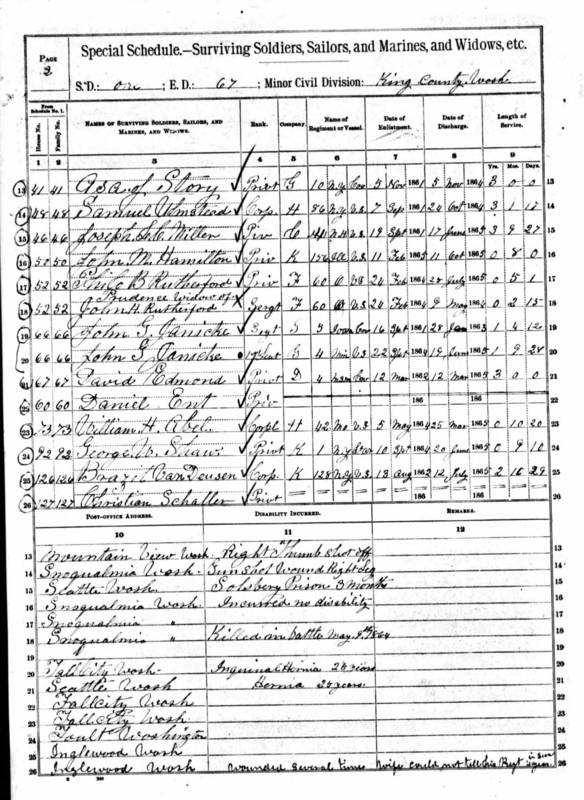 PAGE 2
Special Schedule.—Surviving Soldiers, Sailors, and Marines, and Widows, etc.
S.D.: one ; E.D.: 67 ; Minor Civil Division: King County, Wash.
From Schedule No. 1.
House No. Family No. NAMES OF SURVIVING SOLDIERS, SAILORS, AND MARINES, AND WIDOWS. Rank. Company. Name of Regiment or Vessel. Date of Enlistment. Date of Discharge. Length of Service.
Yrs. Mos. Days.
1 2 3 4 5 6 7 8 9
13 41 41 Asa Story Privt G 10 N.Y. Cav 5 Nov 1861 5 Nov 1864 3 0 0 13
14 48 48 Samuel Corp. H 86 N.Y. 7 Sep 1861 24 Oct 1864 3 1 17 14
15 46 46 Joseph Priv C 19 Sept 17 June 1865 3 9 27 15
16 50 50 John M. Hamilton Priv K 156 Ill 11 Feb 1865 11 Oct 1865 0 8 0 16
17 52 52 B Rutherford Priv F 60 O 24 Feb 1864 28 July 1865 0 5 1 17
Prudence widow of
18 52 52 John H. Rutherford Sergt F 60 24 Feb 1864 9 May 1864 0 2 15 18
19 66 66 John G. Janicke Sergt 3 16 Sept 1861 28 1863 1 4 12 19
20 66 66 John G. Janicke G 4 22 Sept 1864 19 June 1865 1 9 28 20
21 67 67 David Edmond Privt D 4 12 Mar 1862 12 Mar 1865 3 0 0 21
22 60 60 Daniel Ent Priv 186 186 22
23 73 73 William H. Abel Corpl H 42 Mo 5 May 1864 25 Mar 1865 0 10 20 23
24 92 92 George W. Shaw Privt K 1 10 Sept 1864 20 June 1865 0 9 10 24
25 126 126 Van Deusen Corp. K 128 N.Y. 13 Aug 1862 12 July 1865 2 10 29 25
26 127 127 Christian Schaller Privt 186 186 26
POST-OFFICE ADDRESS. DISABILITY INCURRED. REMARKS.
10 11 12
13 Mountain View Wash. Right Thumb Shot off 13
14 Snoqualmia Wash. Gun Shot Wound Right Leg 14
15 Seattle Wash. Prison 3 months 15
16 Snoqualmia Wash. Incurred no disability 16
17 Snoqualmia " 17
18 Snoqualmia " Killed in battle May 9th 1864 18
19 19
20 Fall City Wash. Inguinal Hernia 24 years 20
21 Seattle Wash Hernia 24 years 21
22 Fall City Wash 22
23 Fall City Wash 23
24 Washington 24
25 Inglewood Wash 25
26 Inglewood Wash Wounded Several times Wife could not tell his Regt 26